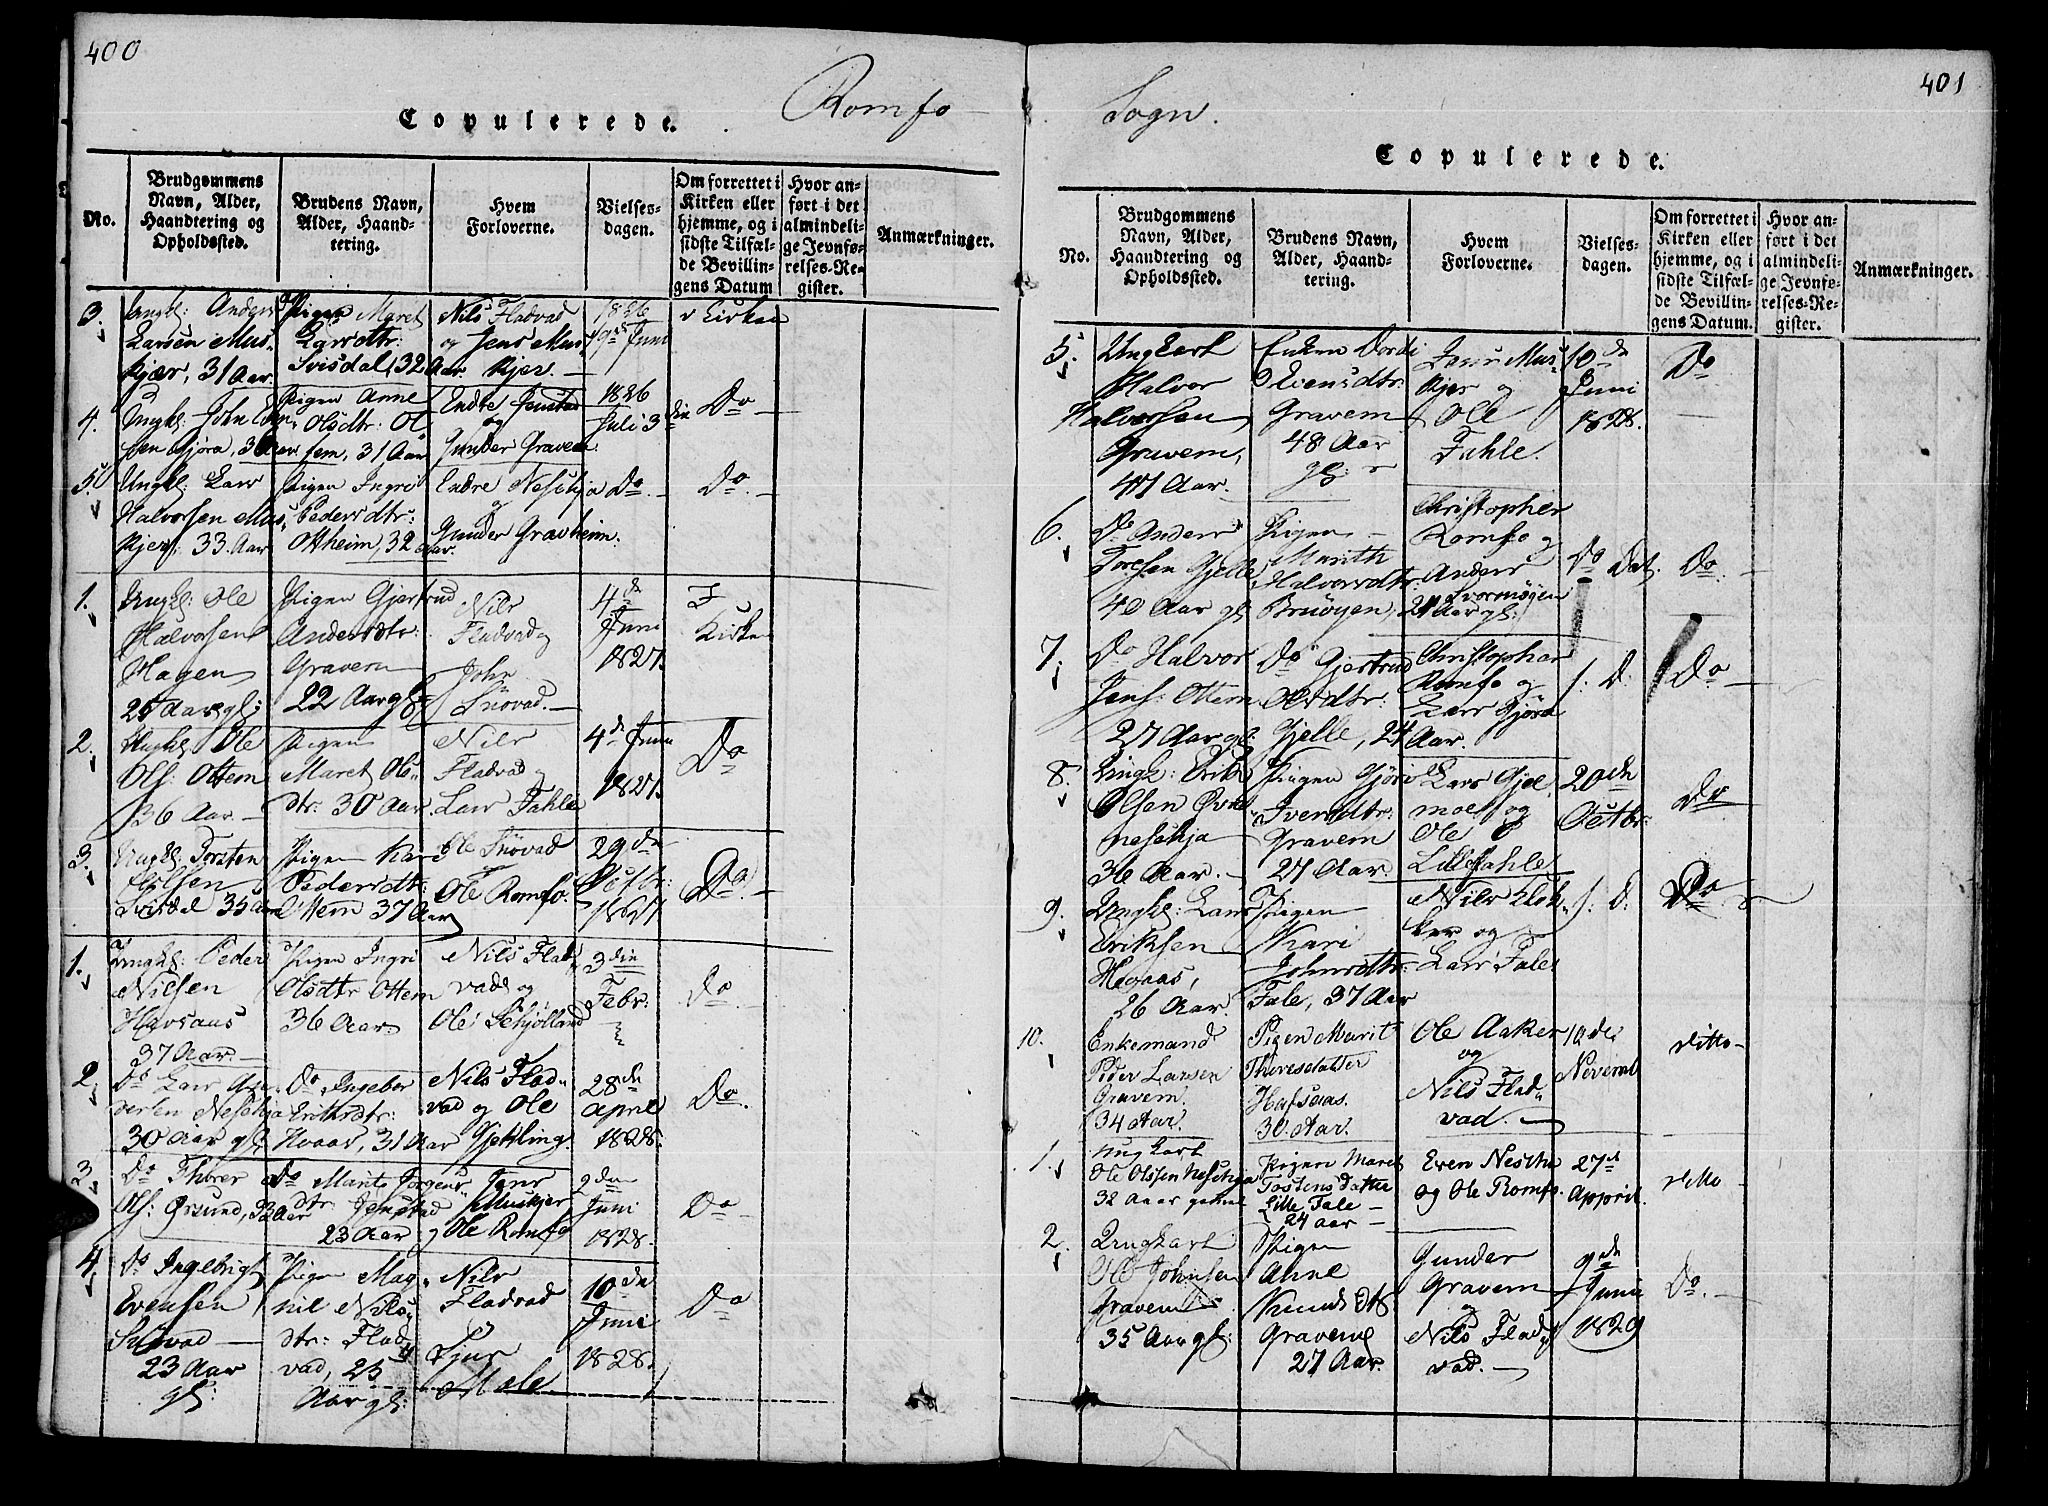 400
Romfo
Copulerede.
No.
Brudgommens Navn, Alder, Haandtering og Opholdssted.
Brudens Navn, Alder, Haandtering.
Hvem Forloverne.
Vielsesdagen.
Om forrettet i Kirken eller hjemme, og i sidste Tilfælde Bevillingens Datum
Hvor anført i det almindelige Jevnførelses-Register.
Anmærkninger.
3.
Ungk: Anders
Larsen Mus„
kjær, 31 Aar
Pigen Maret
Larsdtr:
Svisdal, 32 Aar
Nils Fladvad
og Jens Mus„
kjer.
1826
9de Juni
Kirken
4.
Ungk: John
sen Gjöra, 30
Pigen Anne
Olsdtr: Ot
tem, 31 Aar
Endre Jenstad
og
Gunder Gravem
1826
Juli 3die
Do
5.
Ungk: Lars
Halvorsen Mus„
kjer: 33. Aar
Pigen Ingri
Pedersdtr:
Ottheim, 32 Aar.
Endre Neschja
og
Gunder Gravheim.
Do
Do
1.
Ungk: Ole
Halvorsen
Hagen
25 Aar gl:
Pigen Gjertrud
Andersdtr:
Gravem
22 Aar gl:
Nils
Fladvad og
John
Snövad.
4de
Juni
1827.
I
Kirken
2.
Ungk: Ole
Ols: Ottem
36 Aar.
Pigen
Maret Ols„
dtr: 30 Aar
Nils
Fladvad og
Lars Fahle
4de Juni
1827.
Do
3.
Ungk: Torsten
Svisdal 35 Aar
Pigen Kari
Pedersdtr:
Ottem 37 Aar
Ole Snövad
Ole Romfo.
29de
Octbr:
1827
Do
1.
Ungk: Peder
Nilsen
Havsaas
37 Aar.
Pigen Ingri
Olsdtr Ottem
36 Aar.
Nils Flad„
vad og
Ole Schjölland
3die
Febr:
Do
2.
Do Lars
Neschja
30 Aar gl:
Do Ingebor
Eriksdtr:
Hvaas, 31 Aar
Nils Flad„
vad og Ole
Gjekling.
28de
April
1828.
Do
3
Do Thorer
Ols: Örsund, 32 Aar
Do Marit Jörgens„
dtr Jenstad
23 Aar
Jens
Muskjer
og Ole Romfo
9de
Juni
1828.
Do
4.
Do Ingebrigt
Evensen
23 Aar
gl:
Pigen Mag„
nil Nils„
dtr: Flad„
vad, 25
Aar gl:
Nils
Fladvad
og
Sjur
Hale
10de
Juni
1828.
Do
401
Sogn.
Copulerede.
No.
Brudgommens Navn, Alder, Haandtering og Opholdssted.
Brudens Navn, Alder, Haandtering.
Hvem Forloverne.
Vielsesdagen.
Om forrettet i Kirken eller hjemme, og i sidste Tilfælde Bevillingens Datum.
Hvor anført i det almindelige Jevnførelses-Register.
Anmærkninger.
5.
Ungkarl
Halvor
Halvorsen
Gravem,
47 Aar.
Enken Dordi
Evensdtr.
Gravem
48 Aar
gl:
Jens Mus„
kjer og
Ole
Fahle.
10de
Juni
1828.
Do
6.
Do Anders
Toresen Gjelle,
40 Aar gl
Pigen
Marith
Halvorsdtr.
Bruöyen, 21 Aar gl:
Christopher
Romfo og
Anders
Svormöyen
Do Dat.
Do
7.
Do Halvor
Jens: Ottem
27 Aar gl:
Do Gjertrud
Olsdtr:
Gjelle, 24 Aar.
Christopher
Romfo og
Lars Gjöra
s: D:
Do
8.
Ungk: Erik
Olsen Övre
neschja
36 Aar.
Pigen Gjöro
Iversdtr:
Gravem
27 Aar.
Lars Gjel
moe og
Ole
Lillefahle
20de
Octbr:
Do
9.
Ungk: Lars
Eriksen
Havaas,
26 Aar.
Pigen
Kari
Johnsdtr:
Fale, 37 Aar
Nils Klok„
ker og
Lars Fale
s: D:
Do
10.
Enkemand
Peder Larsen
Gravem.
34 Aar.
Pigen Marit
Thoresdatter
Hafsaas.
30. Aar.
Ole Aaker
og
Nils Flad„
vad.
Novembr
ditto
1.
ungkarl
Ole Olssen Neschja
32 aar gamel
Pigen Maret
Tostens datter
Lille Fale
24 aar
Even Nesthu
og Ole Romfo.
27de
Apporil.
ditto
2.
Ungkarl
Ole Johnsen
Gravem
35 Aar gl:
Pigen
Anne
Knuds Dtr
Gravem
27 Aar.
Gunder
Gravem
og
Nils Flad„
vad.
9de
Juni
1829
Do.